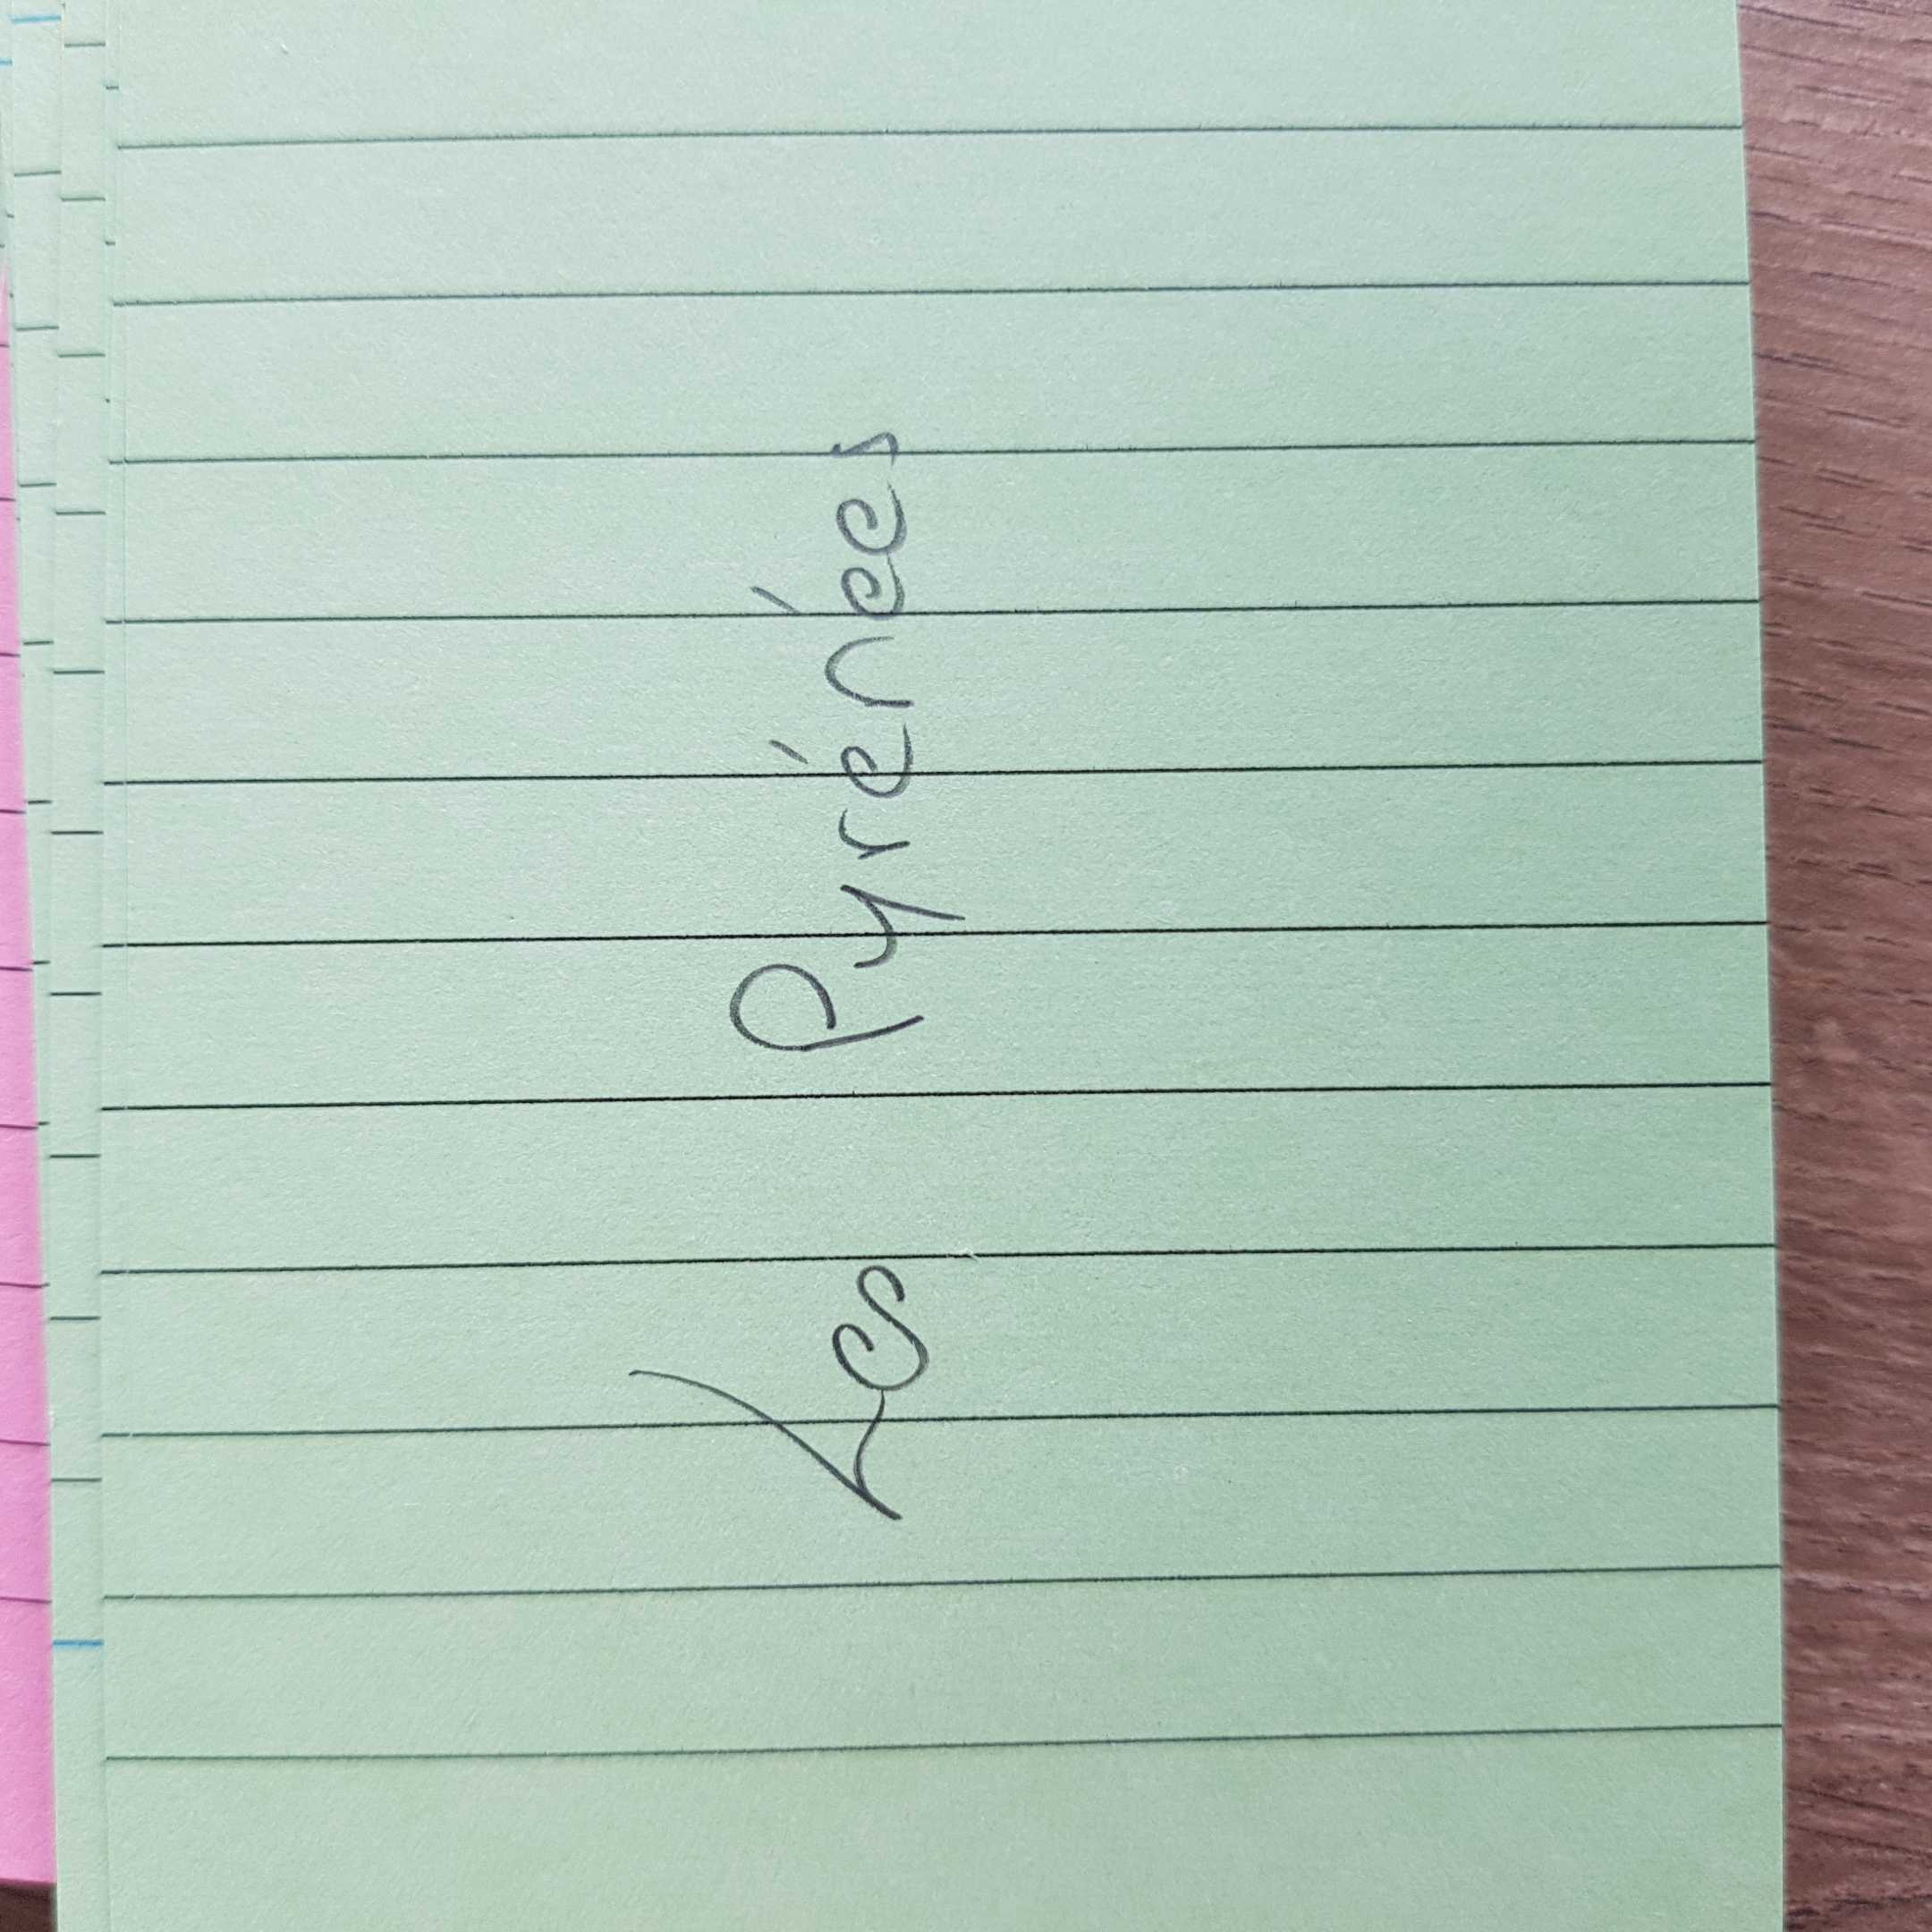 Les Pyrénées